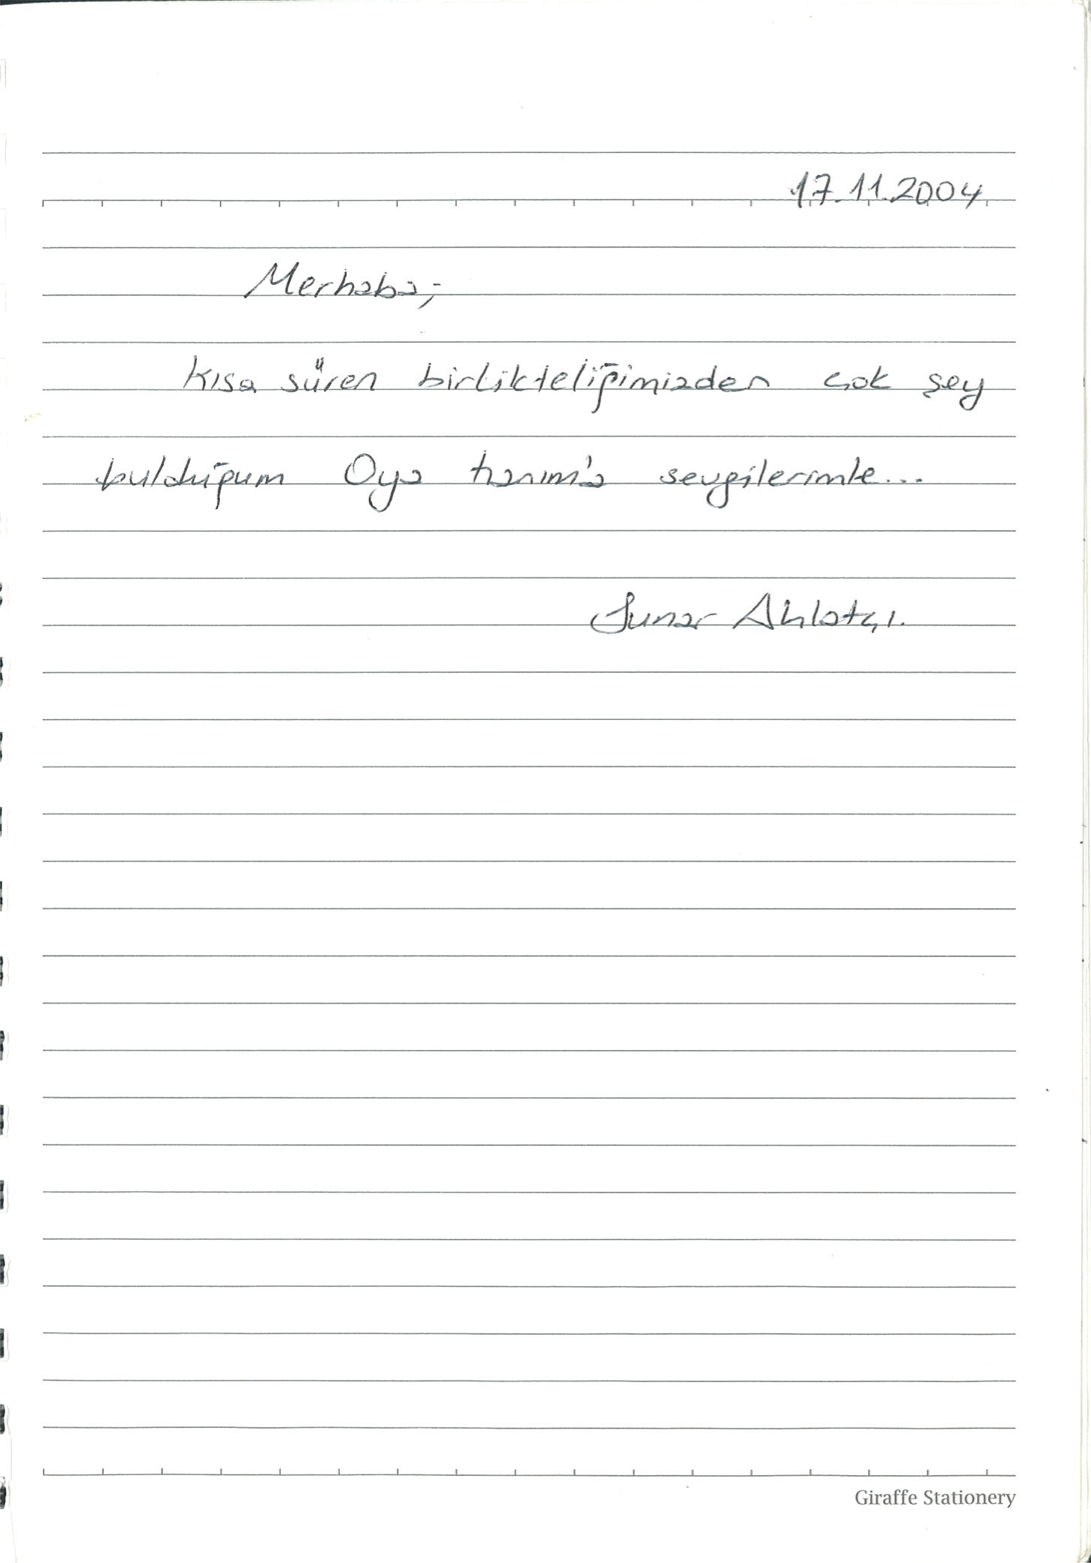 17.11.2004
Merhaba;
Kısa süren birlikteliğimizden çok şey
bulduğum Oya hanım'a sevgilerimle...
Sunar Ahlatçı.
Giraffe Stationery